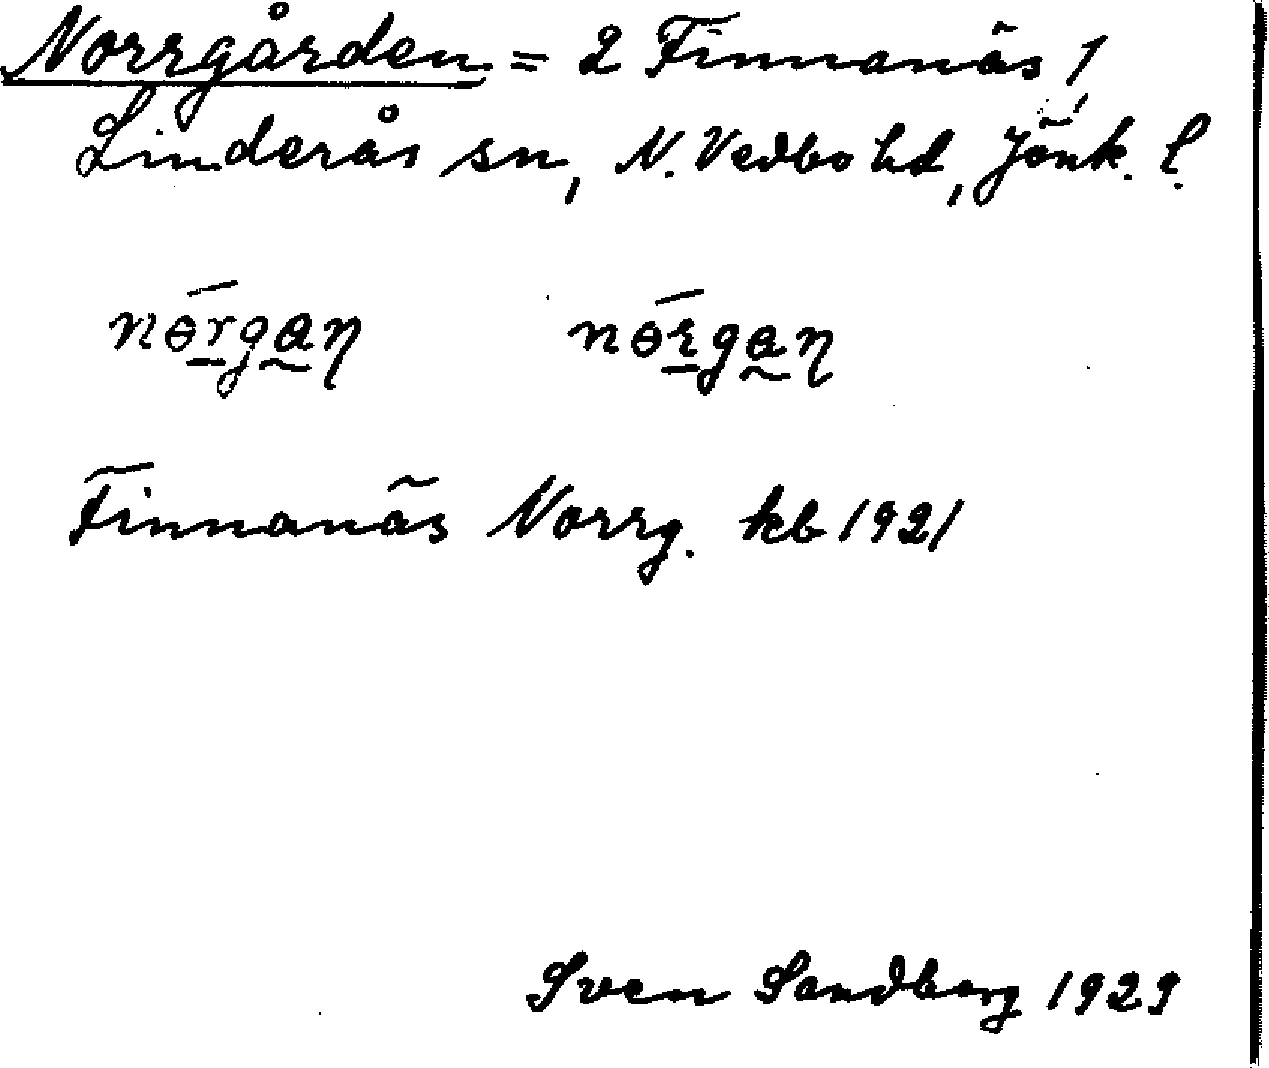 Norrgården = 2 Finnanäs 1,
Linderås sn, N. Vedbo hd, Jönk. l.
nɵrgan nɵrgan
Finnanäs Norrg. kb 1921
Sven Sandberg 1929